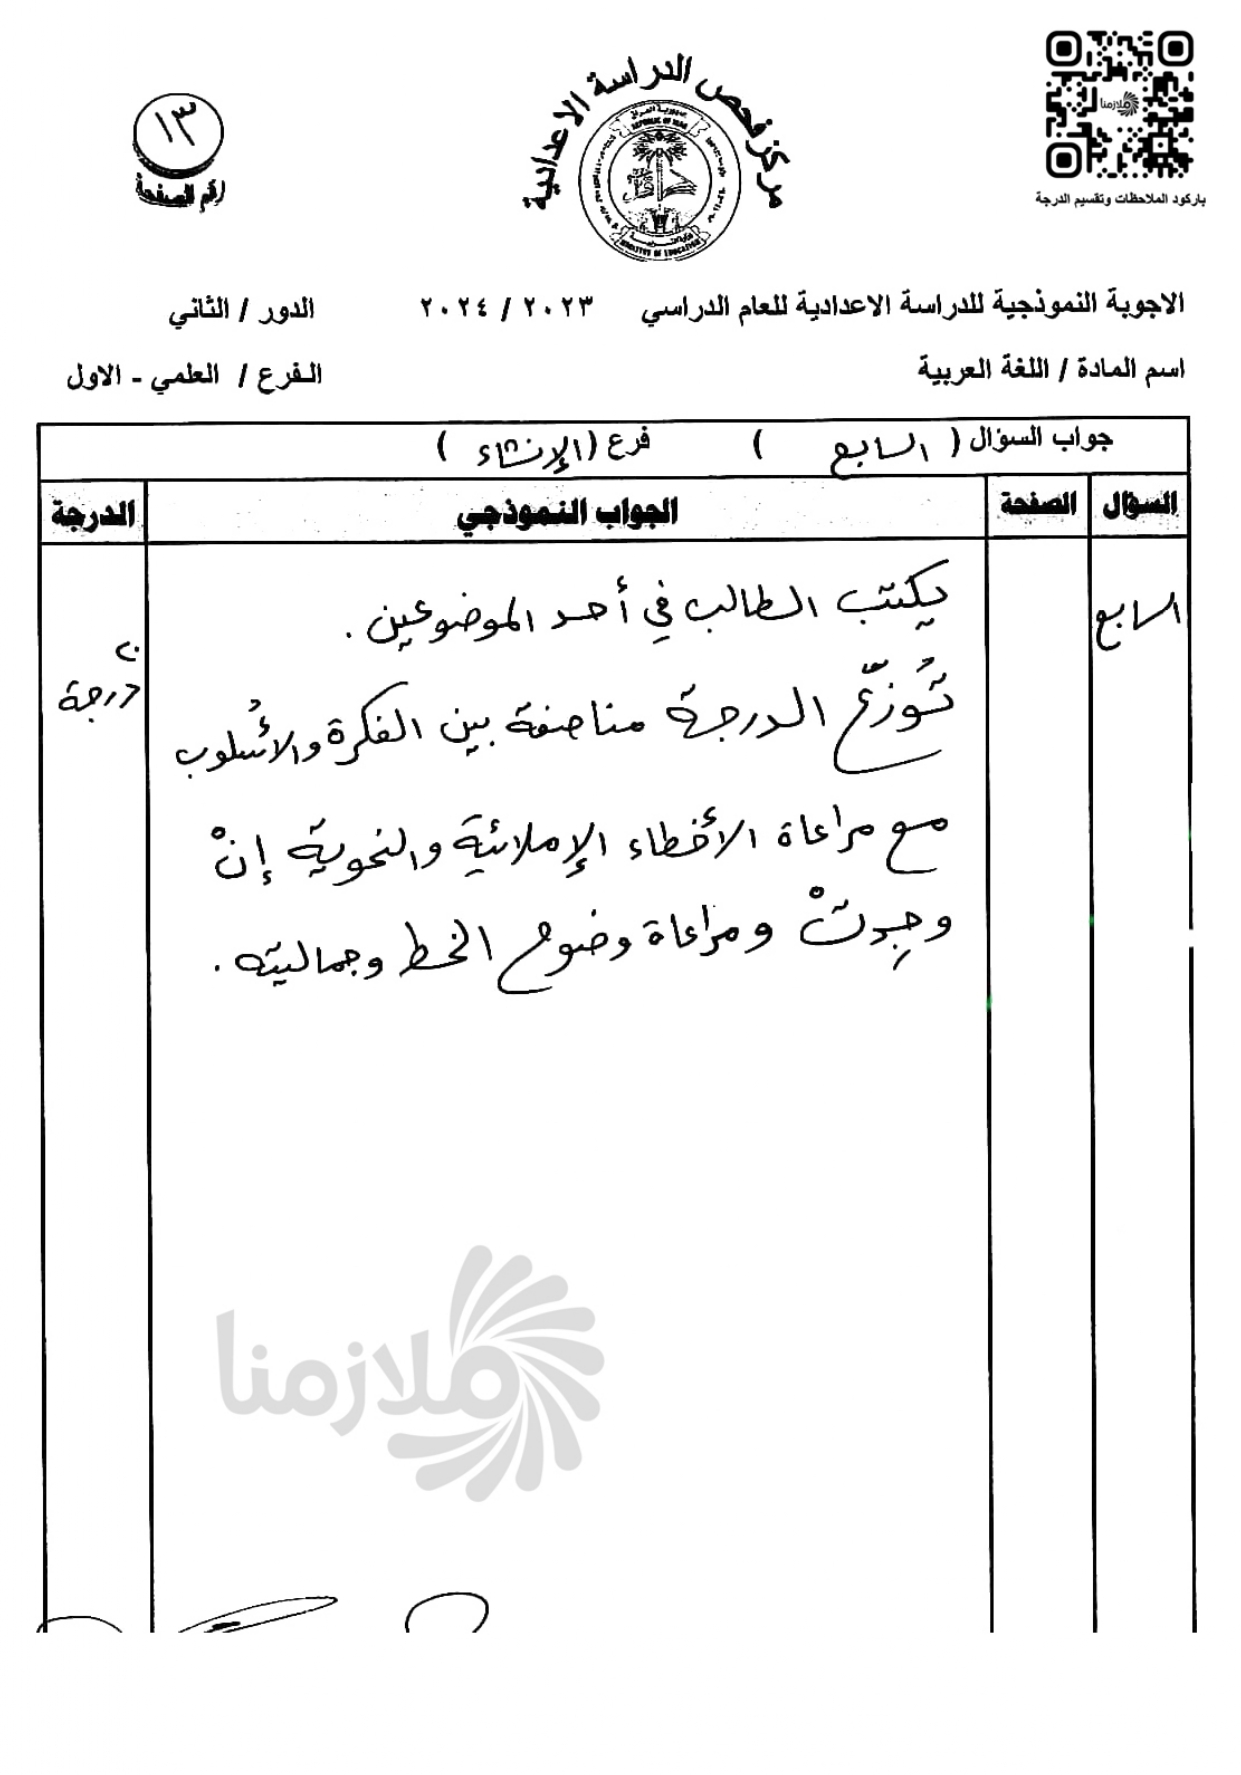 مركز فحص الدراسة الاعدادية
ملازمنا
باركود الملاحظات وتقسيم الدرجة
١٣
رقم الصفحة
REPUBLIC OF IRAQ
MINISTRY OF EDUCATION
الاجوبة النموذجية للدراسة الاعدادية للعام الدراسي ٢٠٢٣ / ٢٠٢٤ الدور / الثاني
اسم المادة / اللغة العربية الفرع / العلمي - الاول
جواب السؤال ( السابع ) فرع ( الإنشاء )
السؤال الصفحة الجواب النموذجي الدرجة
السابع
يكتب الطالب في أحد الموضوعين .
تُوزّع الدرجة مناصفة بين الفكرة والأُسلوب
مع مراعاة الأخطاء الإملائية والنحوية إنْ
وجِدتْ ومراعاة وضوح الخط وجماليته .
٢٠
درجة
ملازمنا